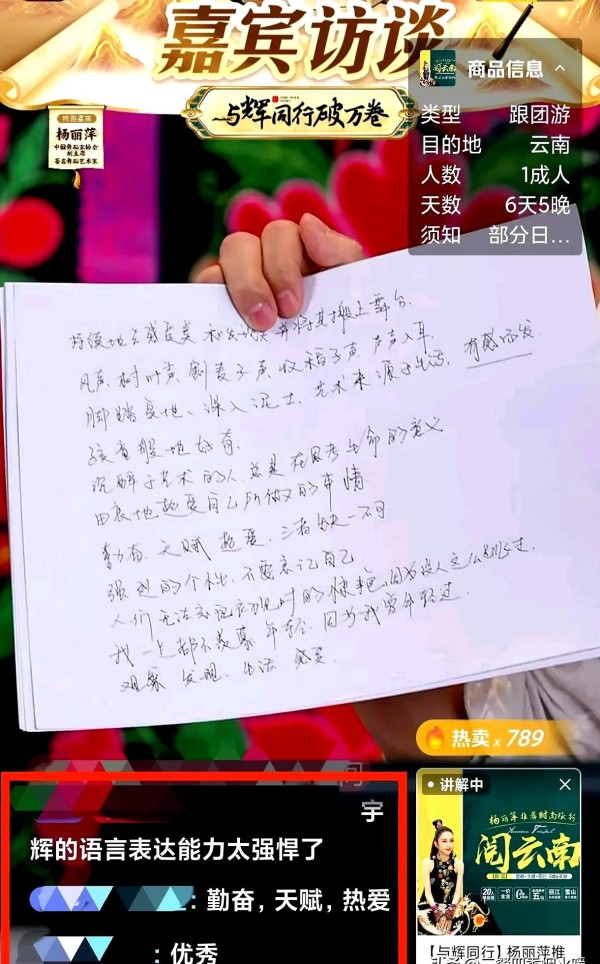 嘉宾访谈
与辉同行破万卷
特邀嘉宾
杨丽萍
中国舞蹈家协会
副主席
著名舞蹈艺术家
商品信息
类型 跟团游
目的地 云南
人数 1成人
天数 6天5晚
须知 部分日...
持续地去感受美和发现美并将其搬上舞台.
风声.树叶声.割麦子声.收稻子声.声声入耳
脚踏实地、深入泥土.艺术来源于生活. 有感而发
孩童般地好奇.
沉醉于艺术的人.总是在思考生命的意义
由衷地热爱自己所做的事情
勤奋.天赋 热爱、三者缺一不可
强烈的个性.不要忘记自己
人们无法忘记 时的惊艳.因为没人这么跳过.
我一点都不羡慕年轻.因为我曾年轻过.
观察 发现.生活 感受.
热卖x789
讲解中
杨丽萍推荐
阅云南
丽江
【与辉同行】杨丽萍推
宇
辉的语言表达能力太强悍了
：勤奋，天赋，热爱
：优秀